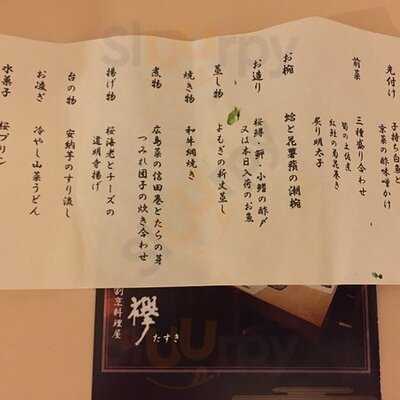 先付け
子持ち白魚と
京菜の酢味噌かけ
前菜
三種盛り合わせ
筍の土佐煮
紅鮭の昆布巻き
炙り明太子
お椀
蛤と花薯蕷の潮椀
お造り
桜鱒・鮃・小鰭の酢〆
又は本日入荷のお魚
蒸し物
よもぎの新丈蒸し
焼き物
和牛網焼き
煮物
広島菜の信田巻とたらの芽
つみれ団子の炊き合わせ
揚げ物
桜海老とチーズの
道明寺揚げ
台の物
安納芋のすり流し
お凌ぎ
冷やし山菜うどん
水菓子
桜プリン
割烹料理屋
襷
たすき
Sluurpy